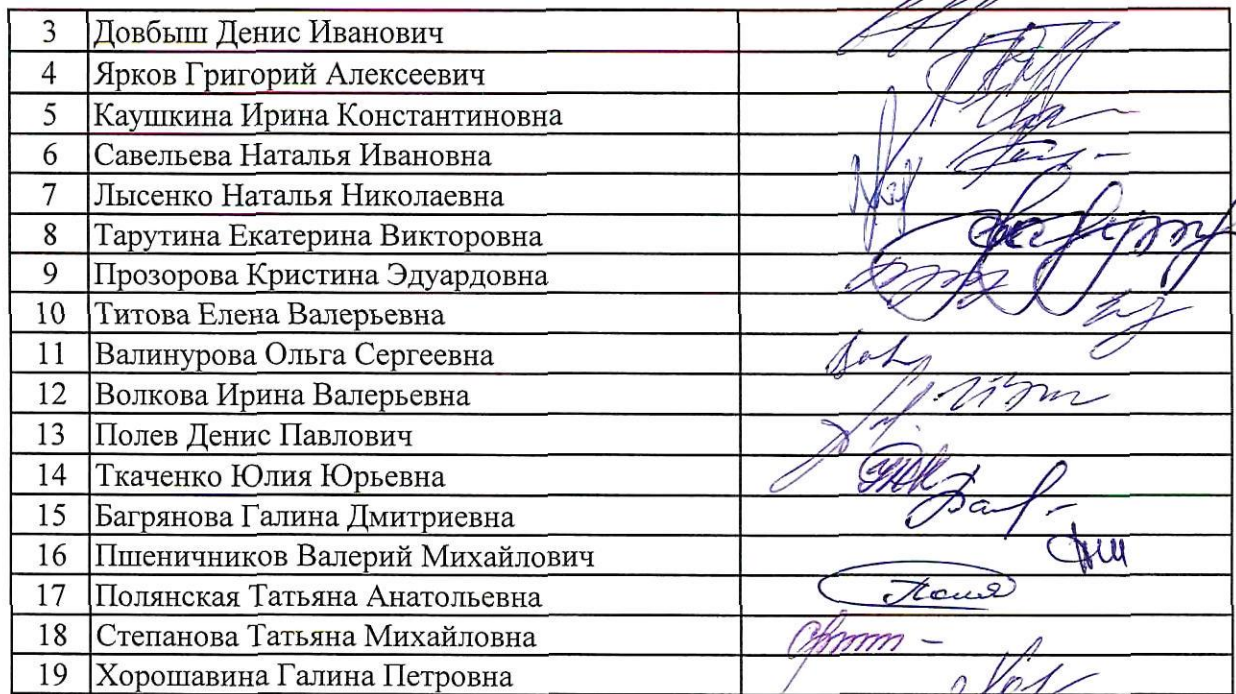 3 Довбыш Денис Иванович
4 Ярков Григорий Алексеевич
5 Каушкина Ирина Константиновна
6 Савельева Наталья Ивановна
7 Лысенко Наталья Николаевна
8 Тарутина Екатерина Викторовна
9 Прозорова Кристина Эдуардовна
10 Титова Елена Валерьевна
11 Валинурова Ольга Сергеевна
12 Волкова Ирина Валерьевна
13 Полев Денис Павлович
14 Ткаченко Юлия Юрьевна
15 Багрянова Галина Дмитриевна
16 Пшеничников Валерий Михайлович
17 Полянская Татьяна Анатольевна
18 Степанова Татьяна Михайловна
19 Хорошавина Галина Петровна